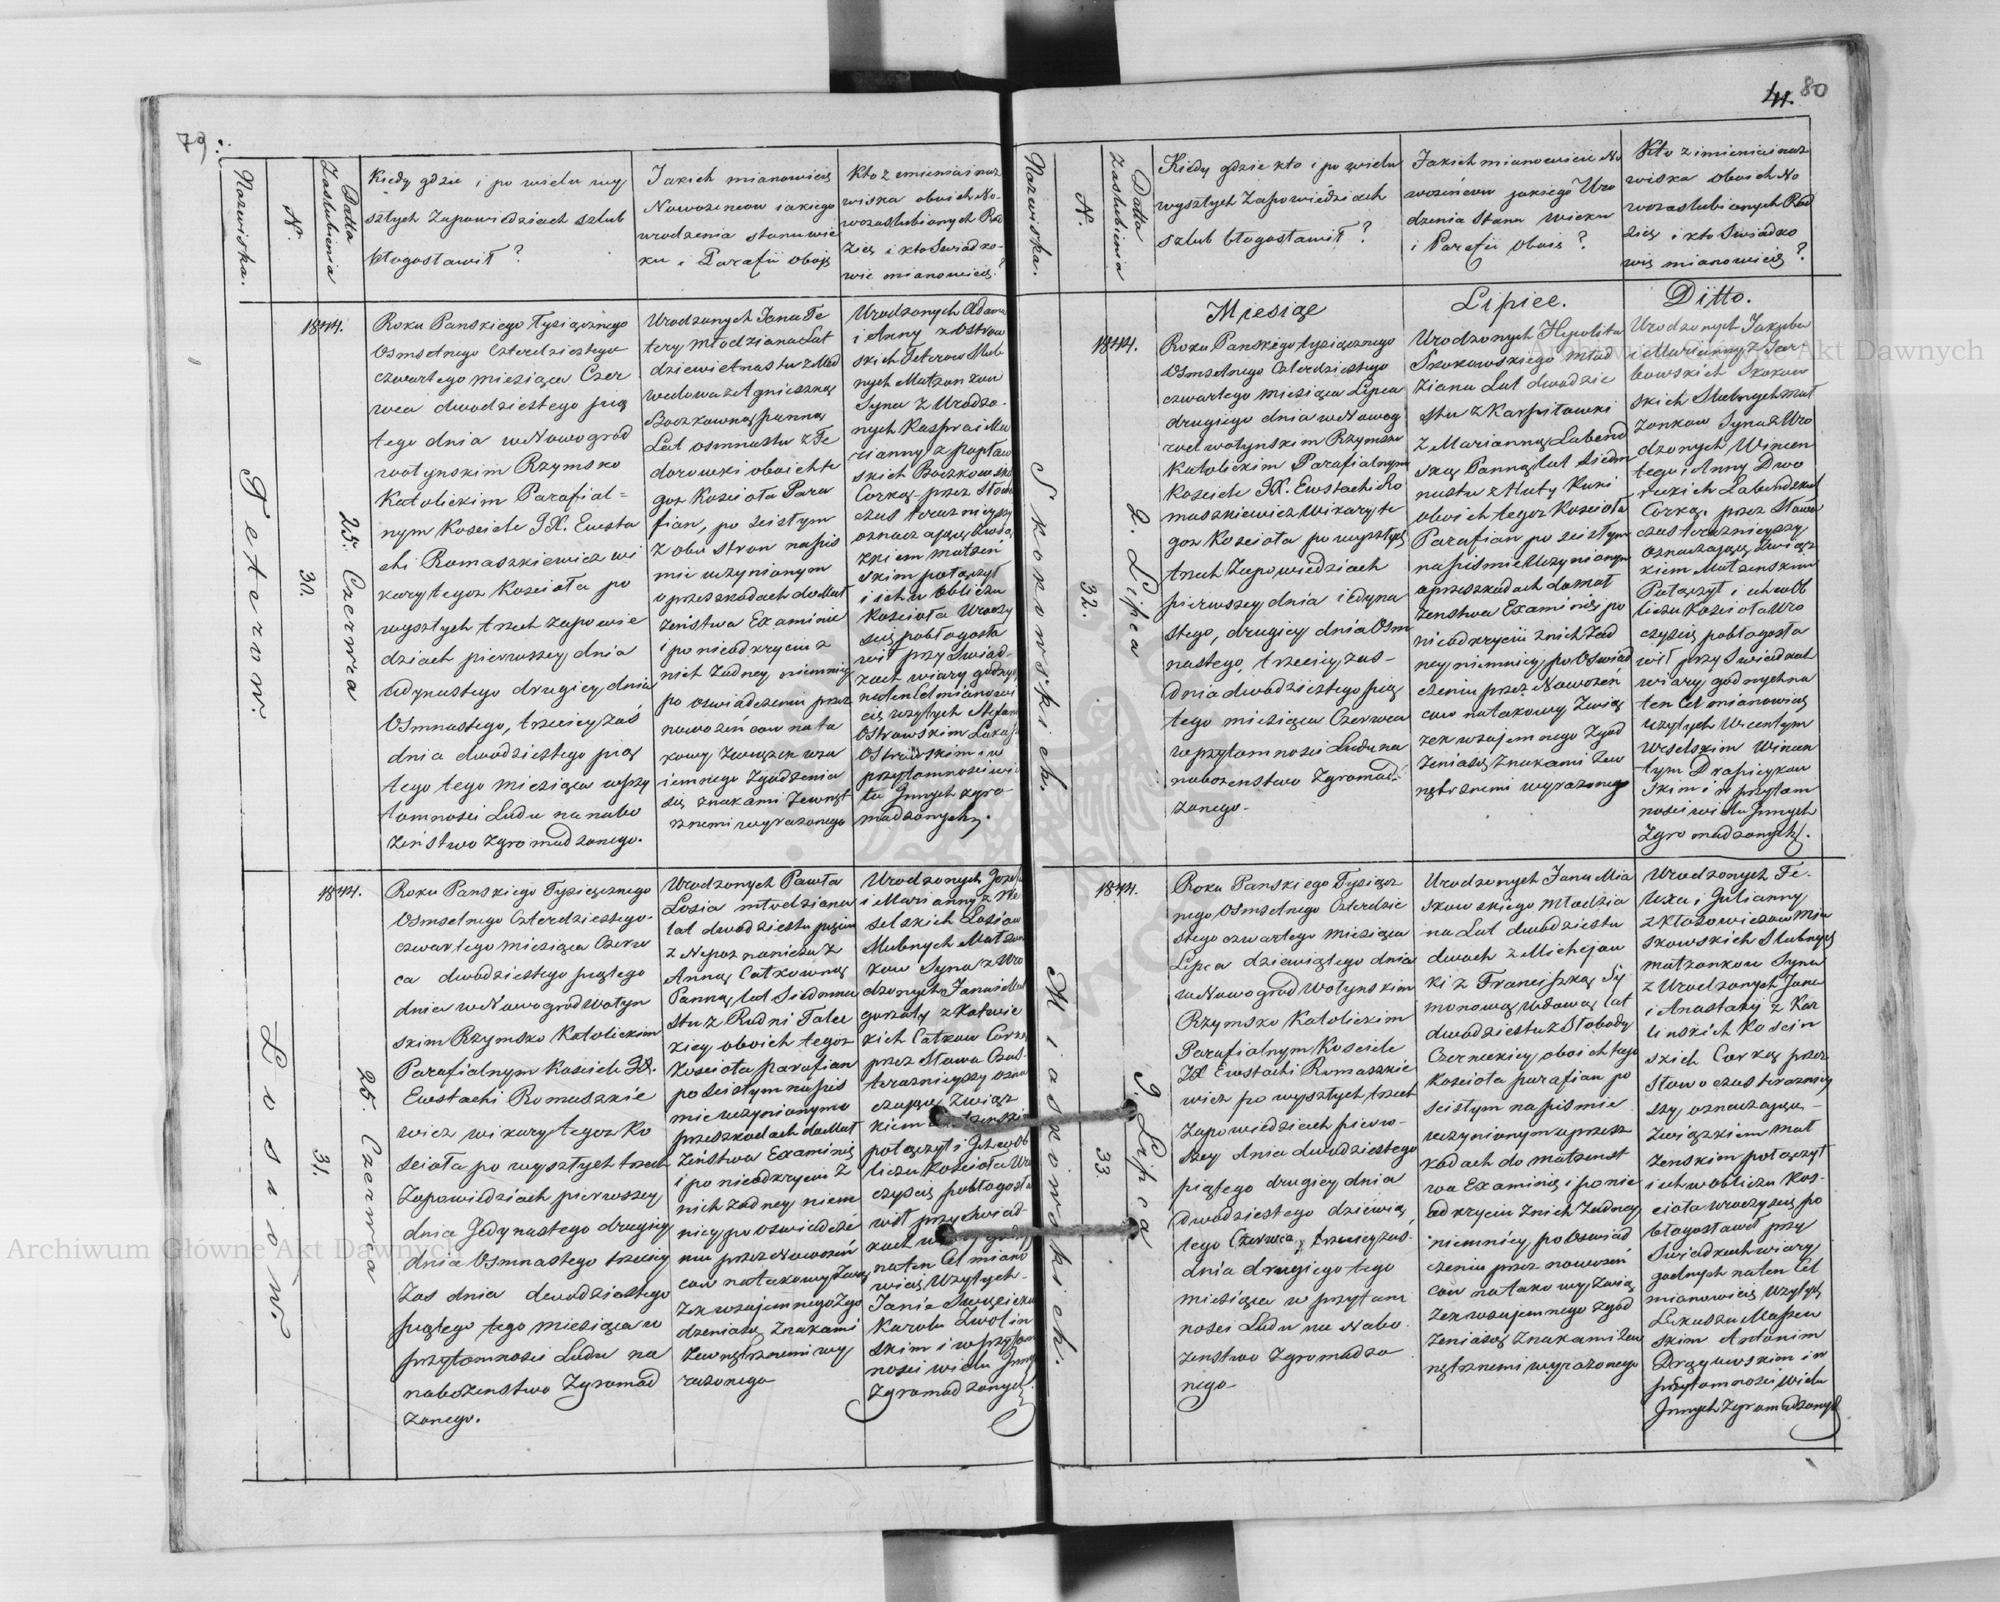 79
Nazwiska.
N.
Datta
Zaślubienia
Kiedy gdzie i po wielu wy
szłych Zapowiedziach szlub
błogosławił?
Jakich mianowicie
Nowożeńców iakiego
urodzenia stanu wie
ku i Parafii oboje
Kto z imienia i naz
wiska oboich No-
wozaslubionych Ro
dzice i kto Swiadko-
wie mianowicie?
Teterow.
30.
25. Czerwca
1844.
Roku Panskiego Tysiącznego
Osmsetnego Czterdziestego
czwartego miesiąca Czer
wca dwudziestego pią
tego dnia w Nowogród
wołynskim Rzymsko
Katolickim Parafial=
nym Kosciele JX. Eusta
chi Romaszkiewicz wi
kary tegoz Koscioła po
wyszłych trzech zapowie
dziach pierwszey dnia
Jedynastego drugiey dnia
Osmnastego, trzeciey zaś
dnia dwudziestego pią
tego tego miesiąca w przy
tomnosci Ludu na nabo
żeństwo zgromadzonego.
Urodzonych Jana Te
tery młodziana Lat
dziewietnastu z Med
wedowa z Agnieszką
Boczkowną panną
Lat osmnastu z Fe
dorowki oboich te
goz Kosciola Para
fian, po scisłym
z obu stron napis
mie uczynionym
o przeszkodach do Mał
żeństwa Examinie
i po nieodkryciu z
nich żadney niemniey
po oswiadczeniu przez
nowożeńcow na ta
kowy Zwiazek wza
iemnego Zgodzenia
się znakami Zewnęt
rznemi wyrażonego
Urodzonych Adama
i Anny z Ostrow
skich Teterow Slub
nych Małżonkow
Syna z Urodzo-
nych Kaspra i Ma
ryanny z Popław
skich Boczkowsk
Corkę przez Słowa
czas teraznieyszy
oznaczaiące Związ
zkiem małżeń
skim połączył
i ich w Obliczu
Kosciola Uroczy
scie pobłogosła
wił przy Swiad-
kach wiary godnych
na ten Cel mianowi
cie użytych Stefan
Ostrowskim Łukasz
Ostrowskim i w
przytomnosci wie
lu Innych zgro-
madzonych.
Łosiow.
31.
25. Czerwca
1844.
Roku Panskiego Tysiącznego
Osmsetnego Czterdziestego-
czwartego miesiąca Czerw
ca dwudziestego piątego
dnia w Nowogród Wołyn
skim Rzymsko Katolickim
Parafialnym Kosciele JX.
Eustachi Romaszkie
wicz wikary tegoz Ko
sciola po wyszłych trzech
Zapowiedziach pierwszey
dnia Jedynastego drugiey
dnia Osmnastego trzeciey
Zas dnia dwudziestego
piątego tego miesiąca w
przytomnosci Ludu na
nabożenstwo Zgromad
zonego.
Urodzonych Pawła
Łosia młodziana
lat dwudziestu pięciu
z Nepoznanicza z
Anną Całkowną
Panną lat Siedmna
stu z Rudni Talec
kiey oboich tegoz
Kosciola parafian
po scisłym napis
mie uczynionym o
przeszkodach do Mał
żeństwa Examinie
i po nieodkryciu z
nich żadney niem
niey po oswiadcze
niu przez Nowożeń
cow na takowy Zwią
zek wzajemnego Zgo
dzenia się Znakami
Zewnętrznemi wy
rażonego
Urodzonych Jozefa
i Marianny z We
selskich Łosiow
Slubnych Małżon
kow Syna z Uro
dzonych Jana i Mał
gorzaty z Kotwic
kich Całkow Corkę
przez Słowa Czas-
teraznieyszy ozna
czające Związ
kiem
połączył i Ich w Ob
liczu Kosciola Uro
czyscie pobłogosła
wił przy Swiad-
kach
na ten Cel miano
wicie Użytych-
Janie Swięcicki
Karolu Zwolin
skim i w przytom
nosci wielu Innych
Zgromadzonych
41. 80
Nazwiska.
N.
Datta
Zaslubienia
Kiedy gdzie kto i po wielu
wyszłych Zapowiedziach
szlub błogosławił?
Jakich mianowicie No
wożeńców jakiego Uro
dzenia Stanu wieku
i Parafii oboie?
Kto z imienia i naz
wiska oboich No
wozaslubionych Rod
zice i kto Swiadko
wie mianowicie?
Miesiąc Lipiec. Ditto.
Skokowskich.
32.
2. Lipca
1844.
Roku Panskiego tysiącznego
Osmsetnego Czterdziestego
czwartego miesiąca Lipca
drugiego dnia w Nowog
rod wołynskim Rzymsko
Katolickim Parafialnym
Kosciele JX. Eustachi Ro
maszkiewicz Wikary te
goz Kosciola po wyszłych
trzech Zapowiedziach
pierwszey dnia iedyna
stego, drugiey dnia Osm
nastego, trzeciey zas-
dnia dwudziestego pią
tego miesiąca Czerwca
w przytomnosci Ludu na
nabożenstwo Zgromad-
zonego-
Urodzonych Hipolita
Skokowskiego Młod
ziana Lat dwudzie
stu z Karpiłowki
z Marianną Łabend
ską Panną lat siedm
nastu z Huty Kuni
oboich tegoz Kosciola
Parafian po scisłym
napismie uczynionym
o przeszkodach do mał
żenstwa Examinie po
nieodkryciu z nich Żad
ney niemniey po Oswiad
czeniu przez Nowożen
cow na takowy Zwią
zek wzajemnego Zgod
zenia się Znakami Zew
nętrznemi wyrażonego
Urodzonych Jakuba
i Marianny z Jar
bowskich Skokow
skich Slubnych mał
zonkow Syna z Uro
dzonych Wincen
tego i Anny Dwo
reckich Łabendzkich
Corkę. przez Słowa
czas teraznieyszy
oznaczające Związ
kiem Małżenskim
Połączył i ich w Ob
liczu Kosciola Uro
czyscie pobłogosła
wił przy Swiadkach
wiary godnych na
ten Cel mianowicie
użytych Wicentym
Weselskim Wincen
tym Drapieykow
skim i w przytom
nosci wielu Innych
Zgromadzonych.
Miaskowskich.
33.
9. Lipca
1844.
Roku Panskiego Tysiącz
nego Osmsetnego Czterdzie
stego czwartego miesiąca
Lipca dziewiątego dnia
w Nowogrod Wołynskim
Rzymsko Katolickim
Parafialnym Kosciele
JX Eustachi Romaszkie
wicz po wyszłych trzech
Zapowiedziach pierw-
szey dnia dwudziestego
piątego drugiey dnia
dwudziestego dziewią
tego Czerwca, trzeciey zaś
dnia drugiego tego
miesiąca w przytom
nosci Ludu na Nabo
żenstwo Zgromadzo
nego-
Urodzonych Jana Mia
skowskiego Młodzia
na Lat dwudziestu
dwoch z Michejow
ki z Franciszką Sy
monową wdową lat
dwudziestu z Słobody
Czerneckiey oboich tego
Kosciola parafian po
scisłym napismie
uczynionym o przesz
kodach do małżenst
wa Examinie i po nie
odkryciu z nich Żadney
niemniey po Oswiad
czeniu przez nowożeń
cow na takowy Zwią
zek wzajemnego Zgod
zenia się Znakami Zew
nętrznemi wyrażonego
Urodzonych Fe-
lixa i Julianny
z Kłosowiczow Mia
skowskich Slubnych
małżonkow Syna
z Urodzonych Jana
i Anastazy z Kar
linskich Koscin
skich Corkę przez
Słowo czas terazniey
szy oznaczające-
Związkiem Mał
żenskim połączył
i ich w obliczu Kos-
ciola Uroczyscie po
błogosławił przy
Swiadkach wiary
godnych na ten Cel
mianowicie użytych
Łukaszu Majew
skim Antonim
Drązewskim i w
przytomnosci Wielu
Innych Zgromadzonych
Archiwum Główne Akt Dawnych
Archiwum Główne Akt Dawnych